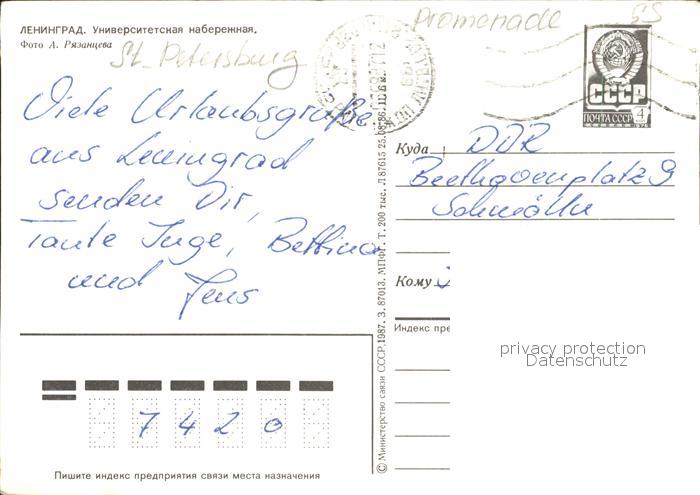 ЛЕНИНГРАД. Университетская набережная.
Фото А. Рязанцева
St. Petersburg
Promenade
GS
СССР
ПОЧТА СССР 4
Viele Urlaubsgrüße
aus Leningrad
senden Dir,
Tante Inge, Bettina
und Jens
Куда DDR
Beethovenplatz 9
Schmölln
Кому
Индекс пре
privacy protection
Datenschutz
7 4 2 0
Пишите индекс предприятия связи места назначения
© Министерство связи СССР. 1987. З. 87013. МПФГ. Т. 200 тыс. Л 87615 25.08.86. Ц. 6 к.